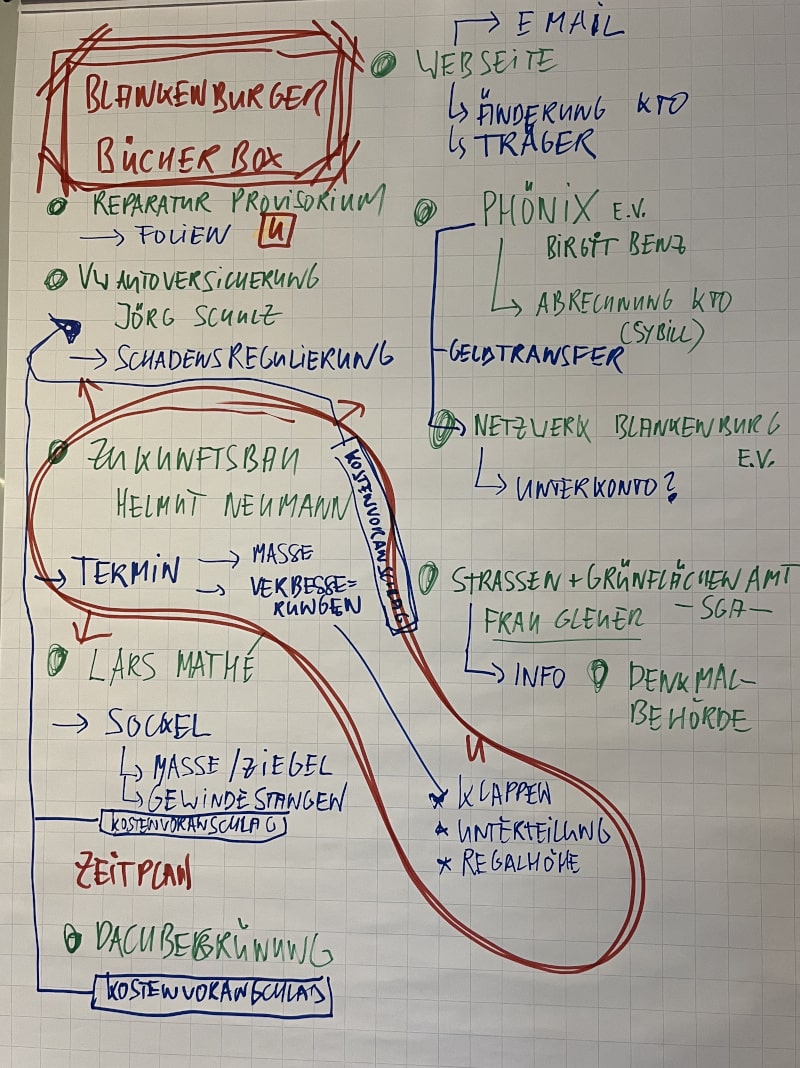 BLANKENBURGER
BÜCHERBOX
REPARATUR PROVISORIUM
→ FOLIEN U
VW AUTOVERSICHERUNG
JÖRG SCHULZ
→ SCHADENSREGULIERUNG
ZUKUNFTSBAU
HELMUT NEUMANN
KOSTENVORANSCHLAG
TERMIN → MASSE
→ VERBESSE=
RUNGEN
LARS MATHÉ
→ SOCKEL
MASSE/ZIEGEL
GEWINDESTANGEN
KOSTENVORANSCHLAG
ZEITPLAN
DACHBEGRÜNUNG
KOSTENVORANSCHLAG
EMAIL
WEBSEITE
ÄNDERUNG KTO
TRÄGER
PHÖNIX E.V.
BIRGIT BENZ
ABRECHNUNG KTO
(SYBILL)
GELDTRANSFER
NETZWERK BLANKENBURG
E.V.
UNTERKONTO?
STRASSEN + GRÜNFLÄCHENAMT
FRAU — SGA —
INFO
DENKMAL-
BEHÖRDE
U
* KLAPPEN
* UNTERTEILUNG
* REGALHÖHE